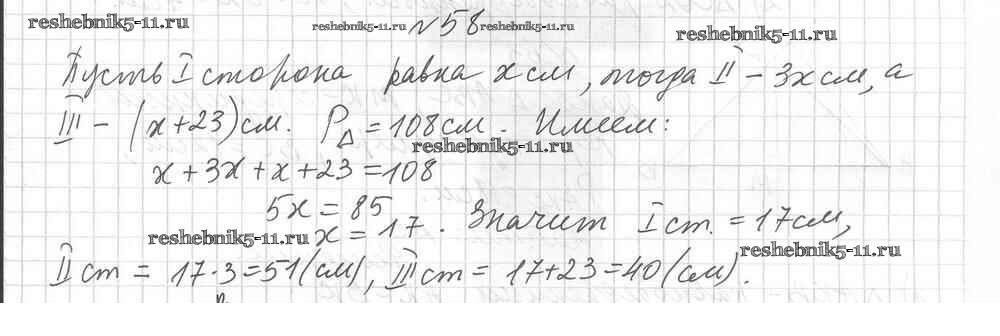 reshebnik5-11.ru reshebnik5-11.ru №58 reshebnik5-11.ru reshebnik5-11.ru
Пусть I сторона равна x см, тогда II – 3x см, а
III – (x+23) см. P△ = 108 см. Имеем:
reshebnik5-11.ru
x + 3x + x + 23 = 108
5x = 85
reshebnik5-11.ru x = 17. Значит I ст. = 17 см,
reshebnik5-11.ru
II ст = 17·3 = 51 (см), III ст = 17+23 = 40 (см).